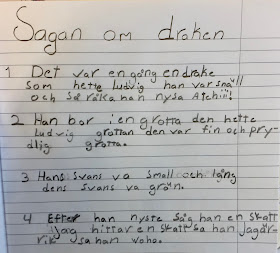 Sagan om draken
1 Det var en gång en drake
som hette ludvig han var snäll
och så råka han nysa Atchiii!
2 Han bor i en grotta den hette
ludvig grottan den var fin och pry-
dlig grotta.
3 Hans svans va smal och lång
dens svans va grön.
4 Efter han nyste såg han en skatt
jag hittar en skatt sa han jag är
rik sa han woho.